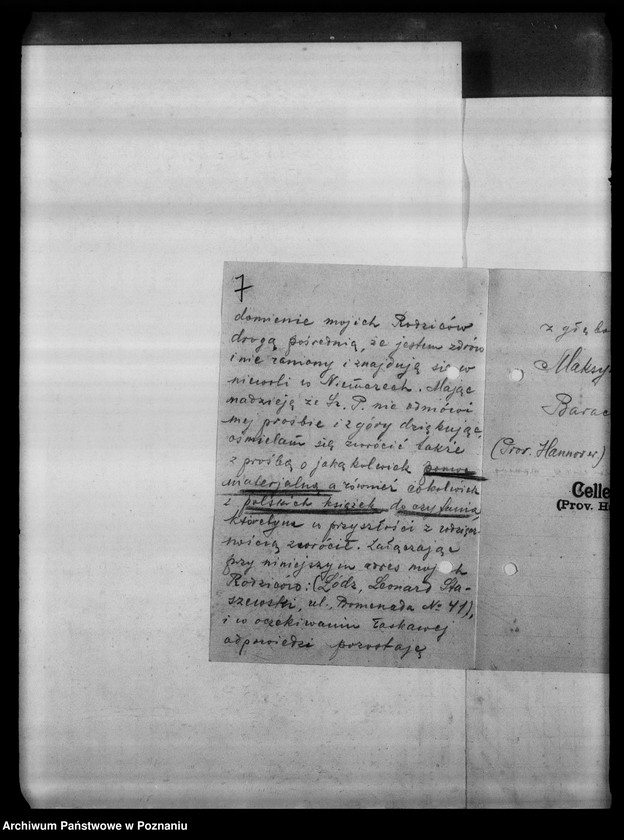 7
domienie mojich Rodziców
drogą pośrednią, że jestem zdrów
i nie raniony i znajduję się w
niewoli w Niemczech. Mając
nadzieję że Sz. P. nie odmówi
mej prośbie i z góry dziękując,
ośmielam się zwrócić także
z prośbą o jaką kolwiek pomoc
materjalną a również cokolwiek
z polskich książek do czytania
któretym w przyszłości z wdzięcz-
nością zwrócił. Załączając
przy niniejszym adres mojich
Rodziców: (Łódź, Leonard Sta-
szewski, ul. Promenada № 41),
i w oczekiwaniu łaskawej
odpowiedzi pozostaję
z głębo
Maksy
Barac
(Prov. Hannover)
Celle
(Prov. H
Archiwum Państwowe w Poznaniu